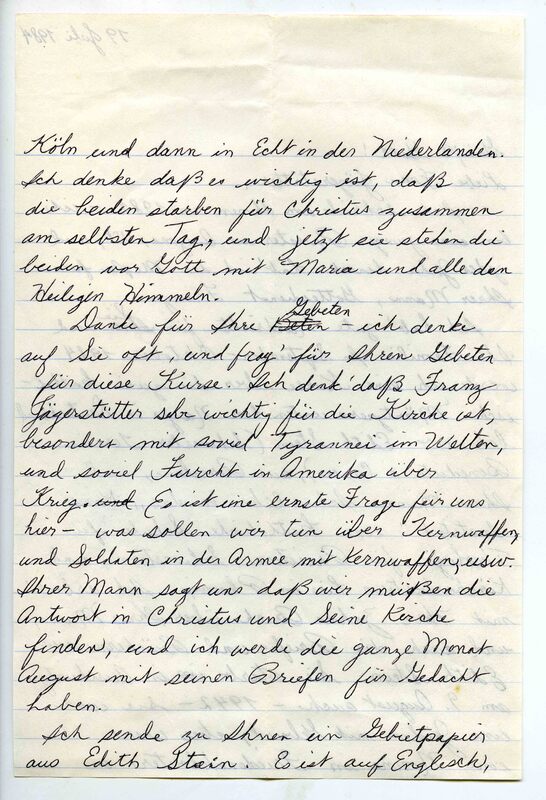 19 Juli 1984
Köln und dann in Echt in der Niederlanden.
Ich denke daß es wichtig ist, daß
die beiden starben für Christus zusammen
am selbsten Tag, und jetzt sie stehen die
beiden vor Gott mit Maria und alle den
Heiligin Himmeln.
Danke für Ihre Beton Gebeten – ich denke
auf Sie oft, und frag' für Ihren Gebeten
für diese Kurse. Ich denk' daß Franz
Jägerstätter sehr wichtig für die Kirche ist,
besonders mit soviel Tyrannei im Welten,
und soviel Furcht in Amerika über
Krieg. und Es ist eine ernste Frage für uns
hier – was sollen wir tun über Kernwaffen,
und Soldaten in der Armee mit Kernwaffen, usw.
Ihrer Mann sagt uns daß wir müßen die
Antwort in Christus und Seine Kirche
finden, und ich werde die ganze Monat
August mit seinen Briefen für Gedacht
haben.
Ich sende zu Ihnen ein Gebietpapier
aus Edith Stein. Es ist auf Englisch,